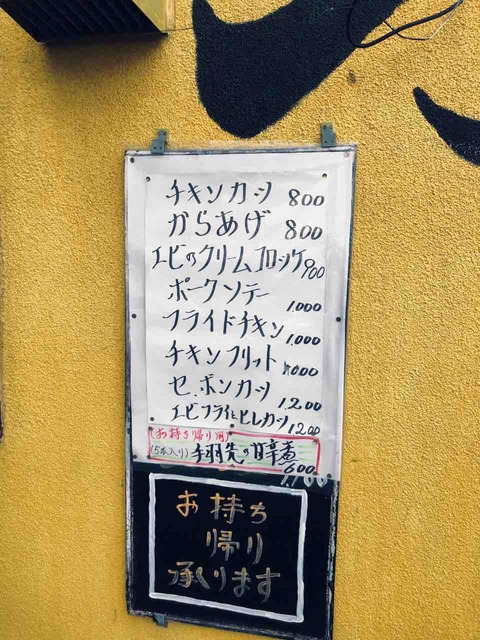 チキンカツ 800
からあげ 800
エビのクリームコロッケ 900
ポークソテー 1.000
フライドチキン 1.000
チキンフリット 1.000
セ.ボンカツ 1,200
エビフライとヒレカツ 1200
(お持ち帰り用)
(5本入り) 手羽先の甘辛煮 600
お持ち
帰り
承ります